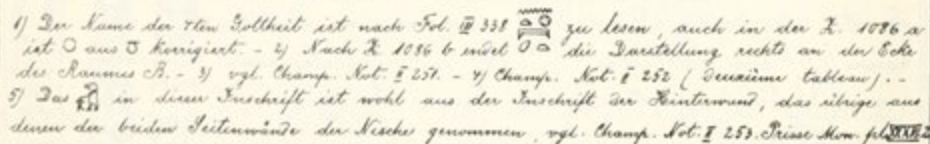 1) Der Name der 4ten Gottheit ist nach Fol. III 338 zu lesen, auch in der Z. 1086 a
ist O aus korrigiert. - 2) Nach Z 1086 b endet die Darstellung rechts an der Ecke
des Raumes B. - 3) vgl. Champ. Not. II 251. - 4) Champ. Not. II 252 (deuxième tableau). -
5) Das in dieser Inschrift ist wohl aus der Inschrift der Hinterwand, das übrige aus
denen der beiden Seitenwände der Nische genommen, vgl. Champ. Not. II 253. Prisse Mon. pl.